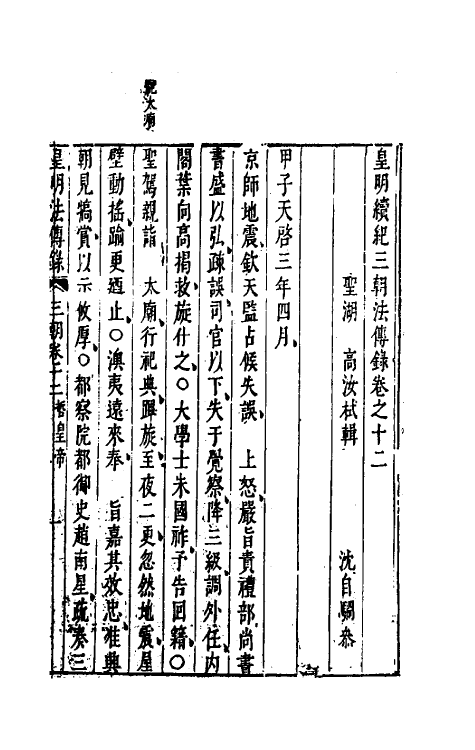 皇明續紀三朝法傳錄卷之十二
聖湖 高汝栻輯 沈自駉叅
甲子天啓三年四月
京師地震欽天監占候失誤 上怒嚴旨責禮部尚書
書盛以弘疎誤司官以下失于覺察降三級調外任内
閣葉向高揭救旋什之○大學士朱國祚予告回籍○
聖駕親詣 太廟行祀典蹕旋至夜二更忽然地震星
壁動搖踰更廼止○澳夷遠來奉 旨嘉其效忠准典
朝見犒賞以示 攸厚○都察院都御史趙南星疏奏三
皇明法傳錄 三朝卷十二 悊皇帝 一
太廟